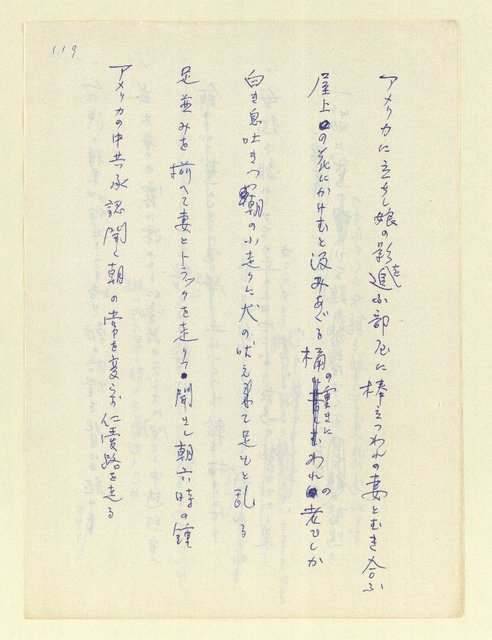 119
アメリカに立ちし娘の影を追ふ部屋に棒立つわれの妻とむき合ふ
屋上の花にかけむと汲みあぐる桶の重さにわれの老もしか
白き息吐きつつ朝の小走りに犬の吠え来て足もと乱る
足並みを揃へて妻とトラックを走りて聞きし朝六時の鐘
アメリカの中共承認聞く朝の常を変へず 路を走る